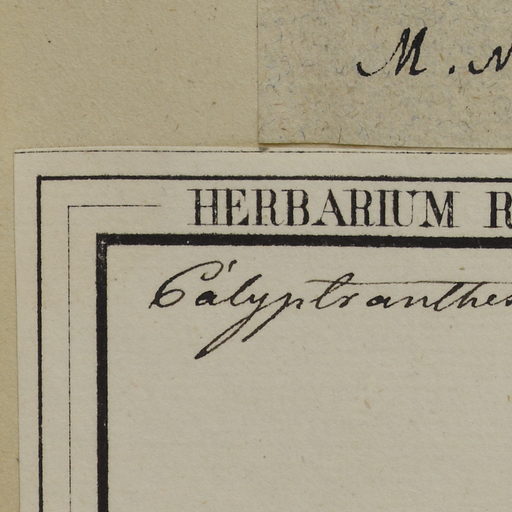 M. N
HERBARIUM R
Calyptranthes